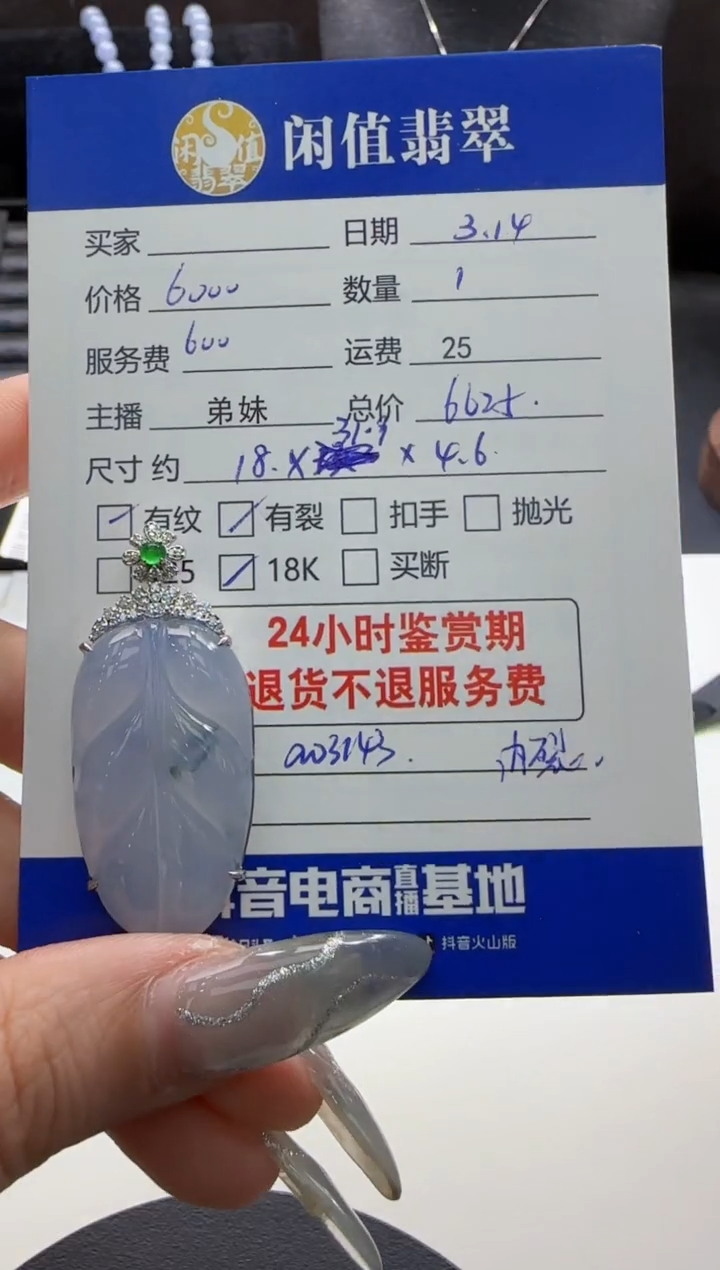 闲值翡翠
闲值翡翠
买家 日期 3.14
价格 6000 数量 1
服务费 600 运费 25
主播 弟妹 总价 6625.
31.1
尺寸 约 18. × × 4.6
有纹 有裂 扣手 抛光
18K 买断
24小时鉴赏期
退货不退服务费
003143. 内裂
音电商直播基地
抖音火山版